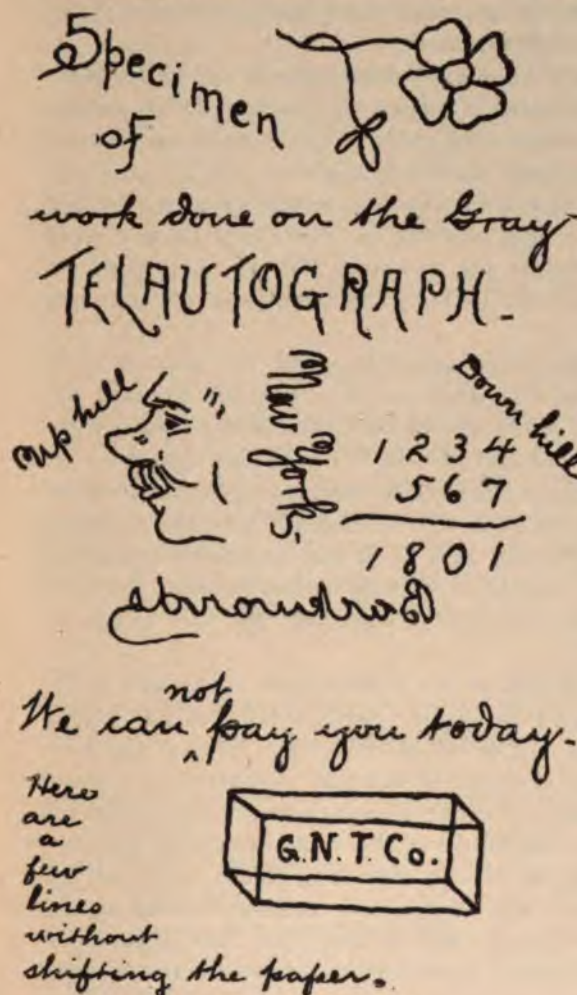 Specimen
of
work done on the Gray
TELAUTOGRAPH.
up hill
New York.
Down hill
1 2 3 4
5 6 7
1 8 0 1
Backwards
We can not pay you today.
Here
are
a
few
lines
without
shifting the paper.
G.N.T.Co.